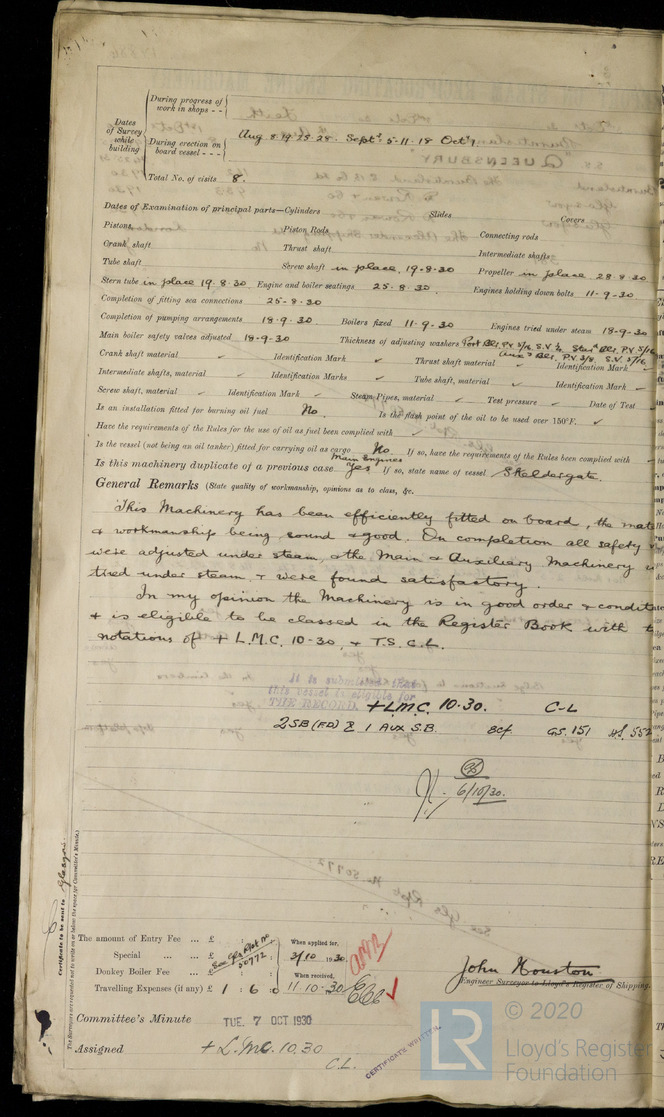 During progress of work in shops - -
Dates of Survey while building
During erection on board vessel - - - Aug. 8. 19. 25. 28. Sept. 5. 11. 18 Oct. 1
Total No. of visits 8.
Dates of Examination of principal parts—Cylinders Slides Covers
Pistons Piston Rods Connecting rods
Crank shaft Thrust shaft Intermediate shafts
Tube shaft Screw shaft in place, 19-8-30 Propeller in place 28.8.30
Stern tube in place 19.8.30 Engine and boiler seatings 25.8.30 Engines holding down bolts 11-9-30
Completion of fitting sea connections 25-8-30
Completion of pumping arrangements 18-9-30 Boilers fixed 11-9-30 Engines tried under steam 18-9-30
Main boiler safety valves adjusted 18-9-30 Thickness of adjusting washers Port Blr. P.V. 3/16 Star'd Blr. P.V. 5/16
Aux'y Blr. P.V. 3/8, S.V. 5/16
Crank shaft material ✓ Identification Mark ✓ Thrust shaft material ✓ Identification Mark ✓
Intermediate shafts, material ✓ Identification Marks ✓ Tube shaft, material ✓ Identification Mark ✓
Screw shaft, material ✓ Identification Mark ✓ Steam Pipes, material ✓ Test pressure ✓ Date of Test
Is an installation fitted for burning oil fuel No. Is the flash point of the oil to be used over 150°F. ✓
Have the requirements of the Rules for the use of oil as fuel been complied with ✓
Is the vessel (not being an oil tanker) fitted for carrying oil as cargo No. If so, have the requirements of the Rules been complied with ✓
Main Engines
Is this machinery duplicate of a previous case Yes If so, state name of vessel Skeldergate.
General Remarks (State quality of workmanship, opinions as to class, &c.
This Machinery has been efficiently fitted on board, the mate
& workmanship being sound & good. On completion all safety
were adjusted under steam, & the Main & Auxiliary Machinery
tried under steam & were found satisfactory.
In my opinion the Machinery is in good order & condit
& is eligible to be classed in the Register Book with
notations of + L.M.C. 10-30, & T.S. C.L.
It is submitted that
this vessel is eligible for
THE RECORD. + L.M.C. 10.30. C-L
2SB (FD) & 1 Aux S.B. 8cf GS. 151 HS. 552
6/10/30.
Certificate to be sent to Glasgow.
The Surveyors are requested not to write on or below the space for Committee's Minute.
The amount of Entry Fee ... £ : : When applied for,
Special ... ... £ See Gls Rpt No 50772. 3/10 1930
Donkey Boiler Fee ... £ : : When received,
Travelling Expenses (if any) £ 1 : 6 : 0 11.10.30
John Houston
Engineer Surveyor to Lloyd's Register of Shipping.
Committee's Minute TUE. 7 OCT 1930
Assigned + L.M.C. 10.30
C.L.
CERTIFICATE WRITTEN.
© 2020
LR
Lloyd's Register
Foundation